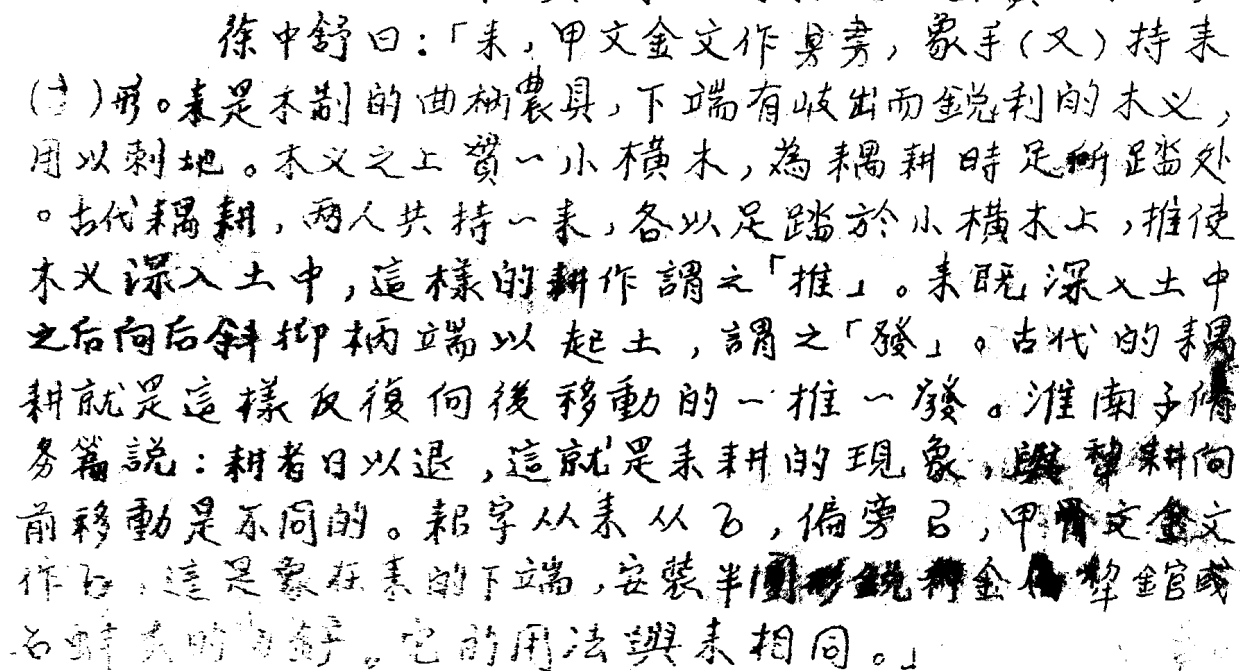 徐中舒曰：「耒，甲文金文作，象手（又）持耒
（）形。耒是木制的曲柄農具，下端有歧出而銳利的木义，
用以刺地。木义之上貫一小橫木，為耦耕時足所踏处
。古代耦耕，两人共持一耒，各以足踏於小橫木上，推使
木义深入土中，這樣的耕作謂之「推」。耒既深入土中
之后向后斜抑柄端以起土，謂之「發」。古代的耦
耕就是這樣反復向後移動的一推一發。淮南子脩
务篇説：耕者日以退，這就是耒耕的現象，與犂耕向
前移動是不同的。耜字从耒从㠯，偏旁㠯，甲骨文金文
作，這是象在耒的下端，安裝半圓形銳利金犂錧或
石蚌，它的用法與耒相同。」